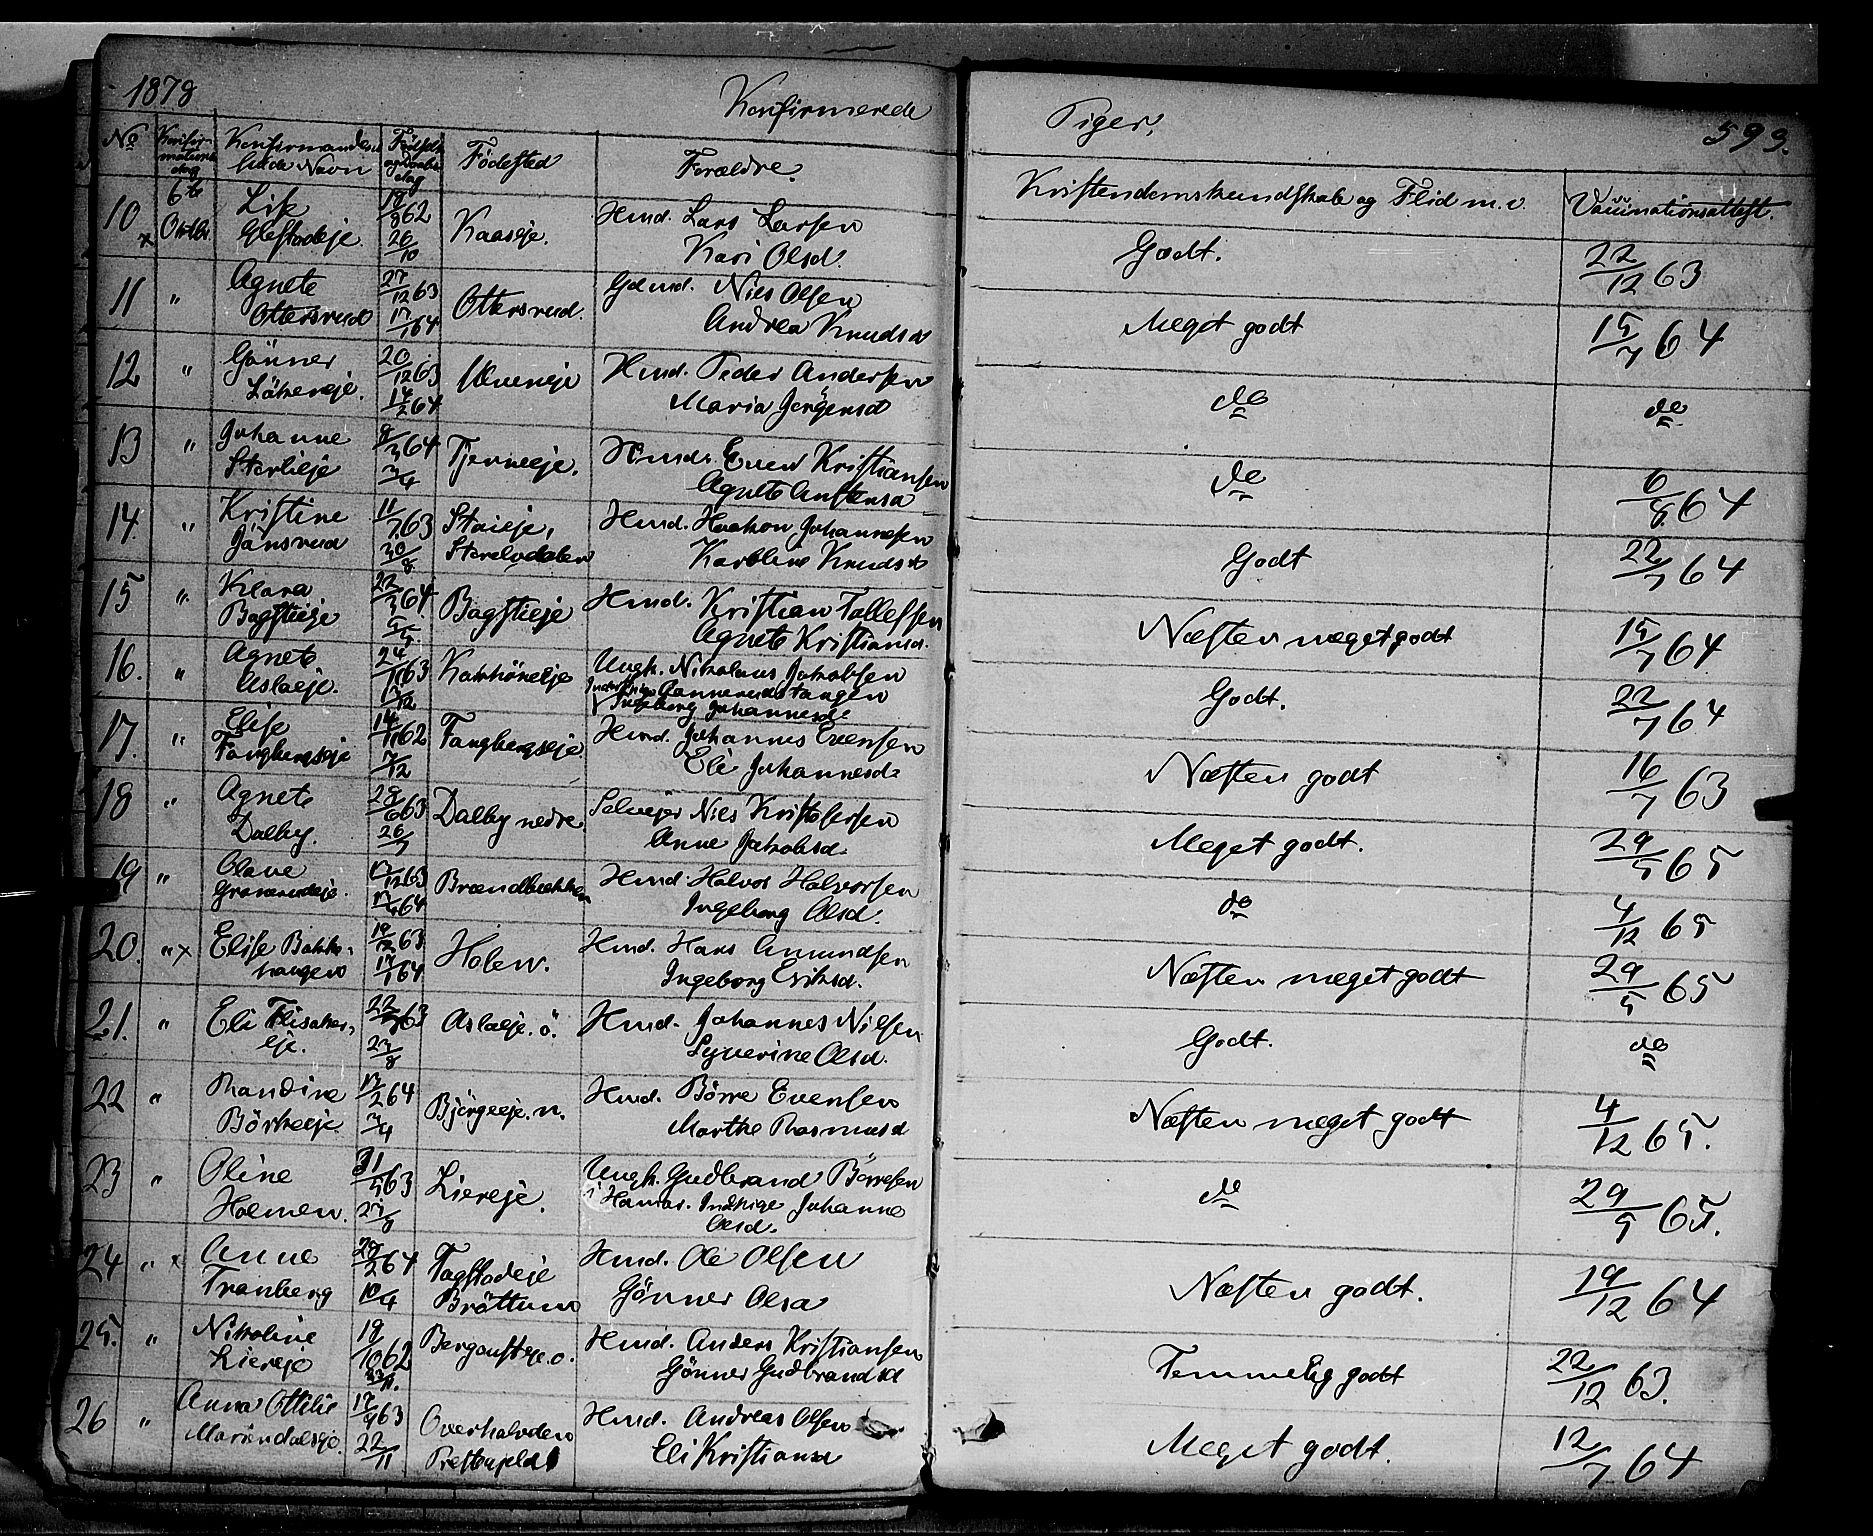 1878 Konfirmerede Piger. 593.
No Konfir-mations dag Konfirmandens fulde Navn Fødsels og Daabs dag Fødested Forældre. Kristendomskundskab og Flid m.v. Vaccinationsattest.
10 6te Octbr. Lise 18/8 62 Kaaseje. Hmd. Lars Larsen Godt. 22/12 63
Glestadeje 26/10 Kari Olsd.
11 " Agnete 27/12 63 Ottersrud. Gdmd. Nils Olsen Meget godt 15/7 64
Ottersrud 17/1 64 Andrea Knudsd
12 " Gönner 20/12 63 Hmd. Peder Andersen do do
Lökereje. 14/2 64 Maria Jörgensd
13 " Johanne 8/3 64 Tjerneeje. Hmd. Even Kristiansen do 6/8 64
Storlieje 3/4 Agnete
14. " Kristine 11/7 63 Staieje, Hmd. Haakon Johannesen Godt 22/7 64
Jönsrud 30/8 Storelvdalen Karoline Knudsd
15 " Klara 22/3 64 Bagstieje Hmd. Kristian Tollefsen Næsten meget godt 15/7 64
Bagstieje Agnete Kristiansd.
16. " Agnete 24/11 63 Ungk. Nikolaus Jakobsen Godt. 22/7 64
Aslaeje. 13/12 Inderstpige
Ingeborg Johannesd
17. " Elise 14/11 62 Fangbergseje Hmd. Johannes Evensen Næsten godt 16/7 63
Fangbergseje 7/12 Eli Johannesd
18 " Agnete 28/6 63 Dalby nedre Selvejer Nils Kristofersen Meget godt. 29/5 65
Dalby. 26/7 Anne Jakobsd
19 " Olave 13/12 63 Brændbækken Hmd. Halvor Halvorsen do 4/12 65
64 Ingeborg Olsd.
20. " x Elise Bakke- 19/12 63 Holen. Hmd. Hans Amundsen Næsten meget godt 29/5 65
haugen 17/1 64 Ingeborg Eriksd.
21. " Eli Flisaker- 22/7 63 Aslaeje. ö. Hmd. Johannes Nilsen Godt. do
eje. 23/8 Syverine Olsd.
22 " Randine 13/2 64 Björgeeje. n. Hmd. Börre Evensen Næsten meget godt 4/12 65.
Börkeeje 3/4 Marthe Rasmusd
23 " Oline 31/5 63 Liereje. Ungk. Gudbrand Börresen do 29/5 65.
Holmen. i Hamar. Indstpige Johanne
Olsd.
24 " x Anne 29/2 64 Fagstadeje Hmd. Ole Olsen Næsten godt. 19/12 64
Tranberg 10/4 Bröttum Gönner Olsd
25. " Nikoline 18/10 62 Bergousteje. o. Hmd. Anders Kristiansen Temmelig godt 22/12 63.
Liereje 23/11. Gönner Gudbrandsd
26 " Anna Ottilie 17/9 63 Overhalvden Hmd. Andreas Olsen Meget godt. 12/7 64
Mariendalseje. 22/11 Prestegjeld Eli Kristiansd